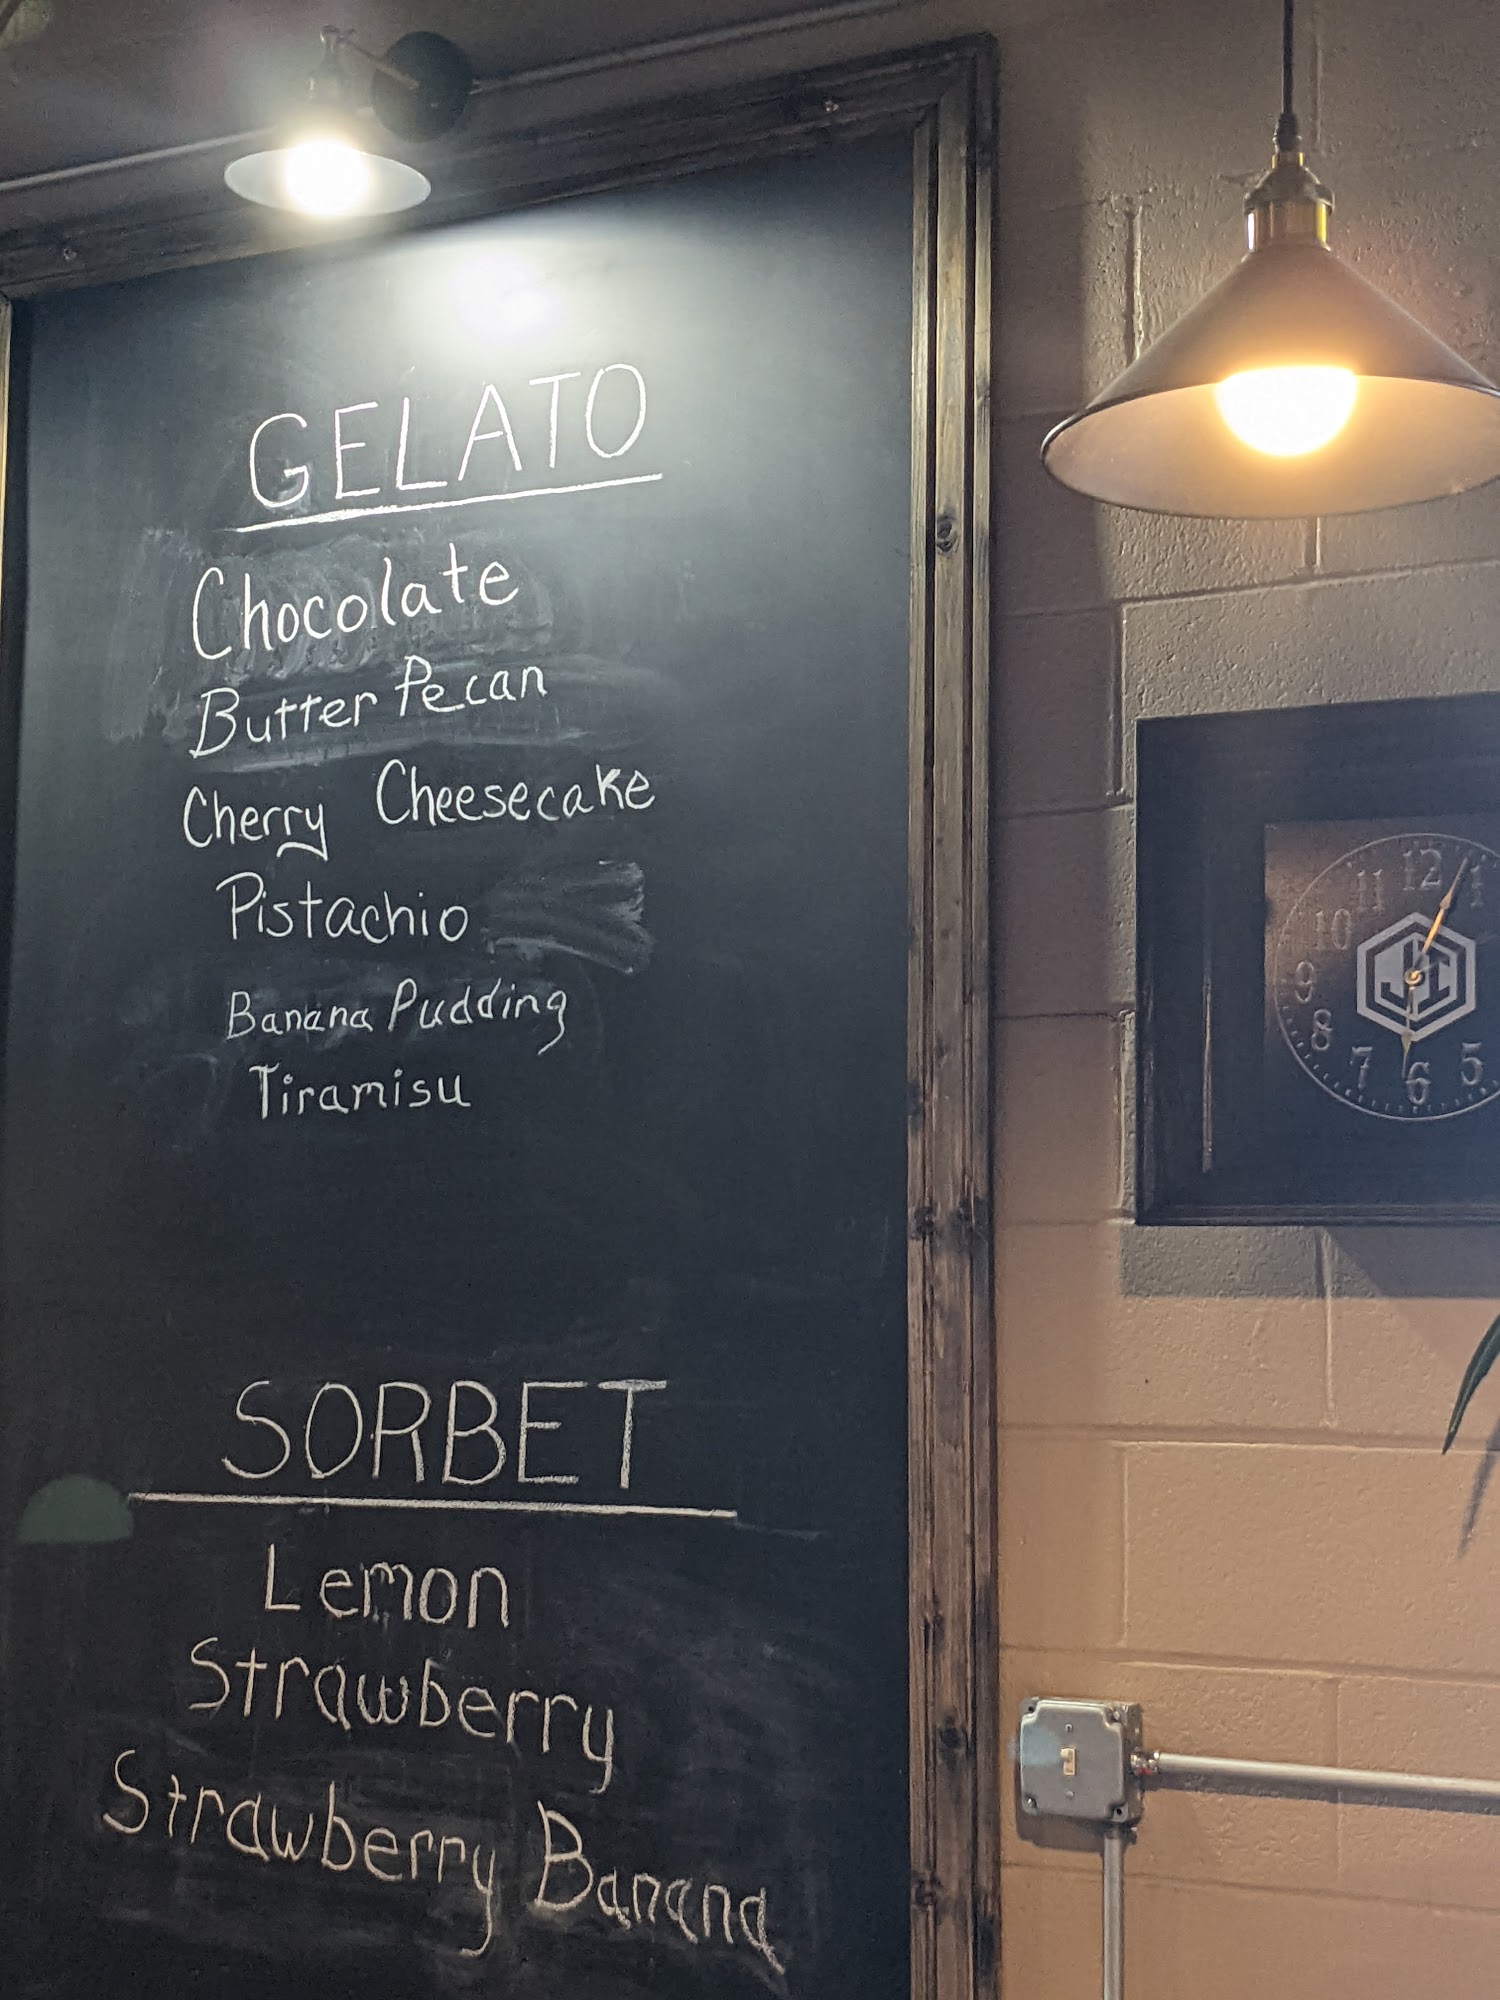 GELATO
Chocolate
Butter Pecan
Cherry Cheesecake
Pistachio
Banana Pudding
Tiramisu
SORBET
Lemon
Strawberry
Strawberry Banana
12
1
11
10
9
8
7
6
5